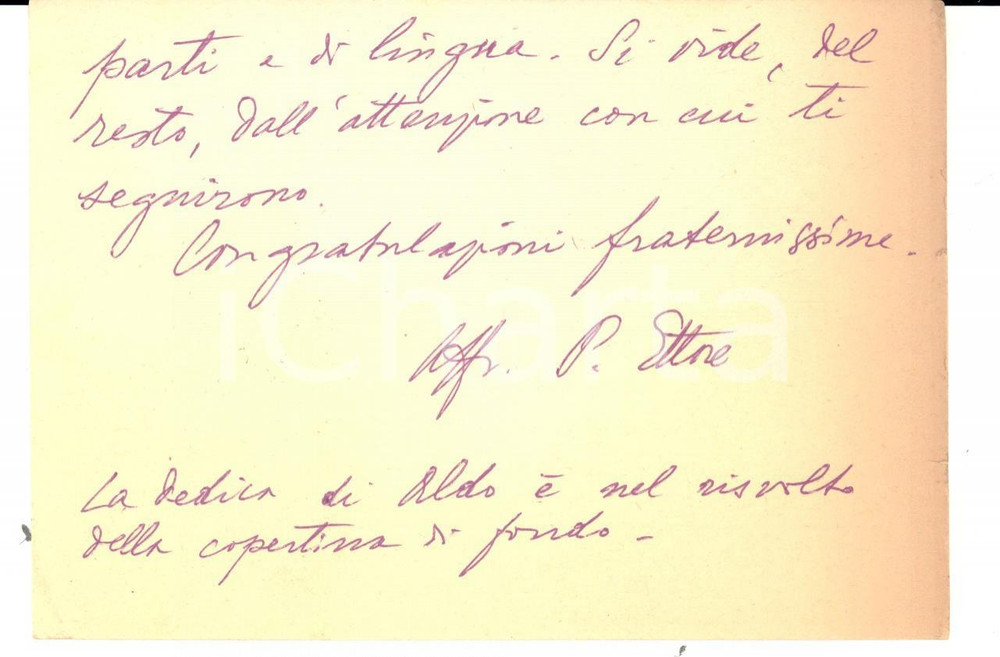 parti e di lingua. Si vide, del
resto, dall'attenzione con cui ti
seguirono.
Congratulazioni fraternissime.
Aff. P. Ettore
La dedica di Aldo è nel risvolto
della copertina di fondo -
iCharta